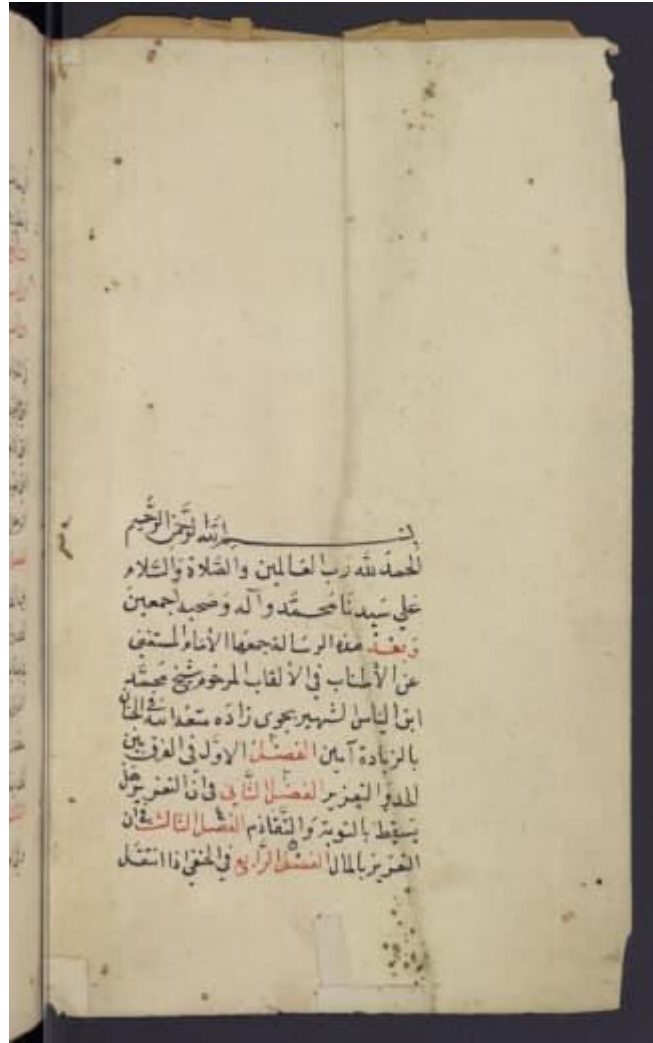 بسم الله الرحمن الرحيم
الحمد لله رب العالمين والصلاة والسلام
علي سيدنا محمد وآله وصحبه اجمعين
وبعد هذه الرسالة جمعها الأمام المستغني
عن الأطناب في الألقاب المرحوم شيخ محمد
ابن الياس الشهير بجوي زاده متعه الله في الجنان
بالزيادة آمين الفصل الاول في الفرق بين
الحد والتعزير الفصل الثاني في ان التعزير هل
يسقط بالتوبة والتقادم الفصل الثالث في ان
التعزير بالمال الفصل الرابع في الحنفي اذا انتقل